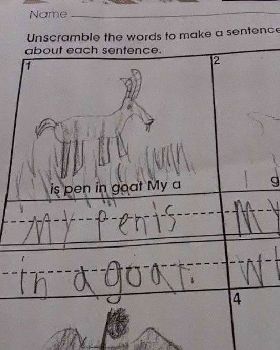 Name
Unscramble the words to make a sentence
about each sentence.
1
2
is pen in goat My a
g
My Penis
My
in a goat.
wi
4